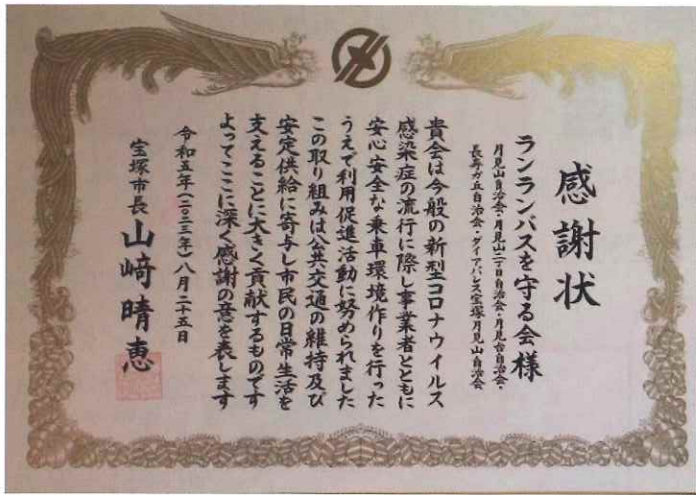 感謝状
ランランバスを守る会様
月見山自治会・月見山二丁目自治会・月見台自治会・
長寿ガ丘自治会・ダイアパレス宝塚月見山自治会
貴会は今般の新型コロナウイルス
感染症の流行に際し事業者とともに
安心安全な乗車環境作りを行った
うえで利用促進活動に努められました
この取り組みは公共交通の維持及び
安定供給に寄与し市民の日常生活を
支えることに大きく貢献するものです
よってここに深く感謝の意を表します
令和五年(二〇二三年)八月二十五日
宝塚市長 山﨑晴恵